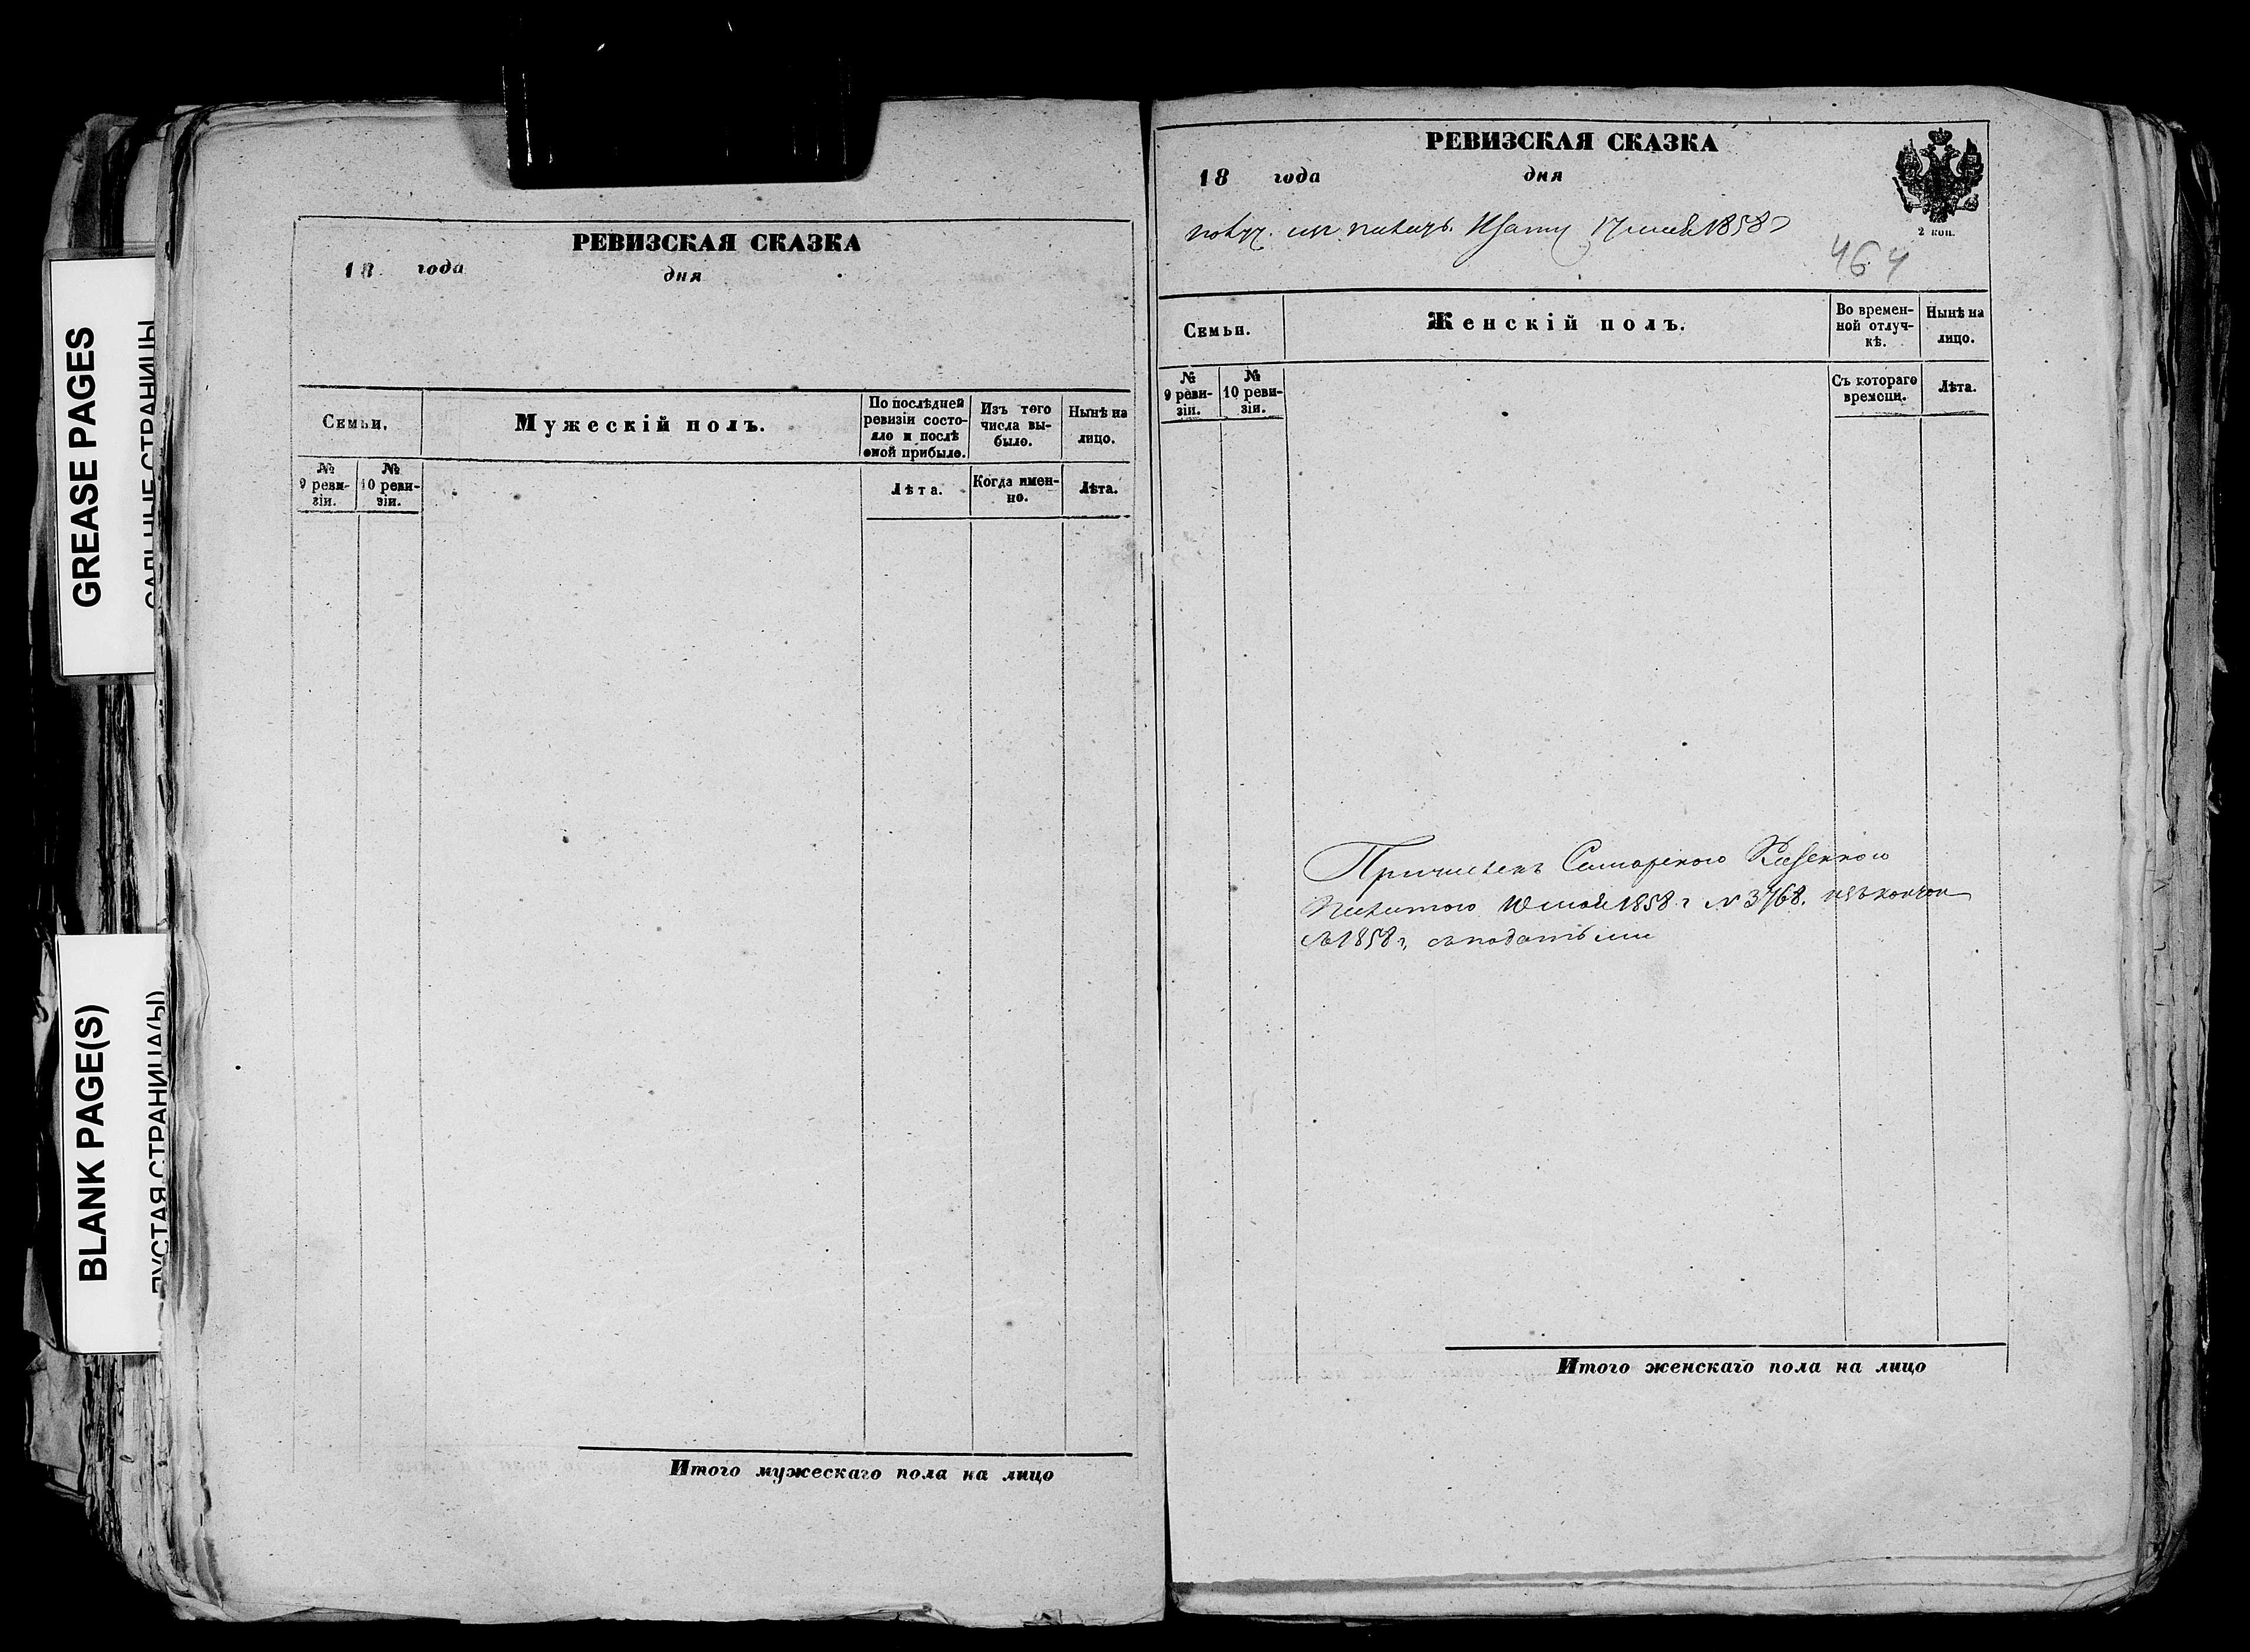 GREASE PAGES
САЛЬНЫЕ СТРАНИЦЫ
BLANK PAGE(S)
ПУСТАЯ СТРАНИЦА(Ы)
РЕВИЗСКАЯ СКАЗКА
18 года дня
Семьи.
Мужескій полъ.
По послѣдней ревизіи состояло и послѣ оной прибыло.
Изъ того числа выбыло.
Нынѣ на лицо.
№ 9 ревизіи.
№ 10 ревизіи.
Лѣта.
Когда именно.
Лѣта.
Итого мужескаго пола на лицо
РЕВИЗСКАЯ СКАЗКА
18 года дня
2 коп.
17 мая 1858
464
Семьи.
Женскій полъ.
Во временной отлучкѣ.
Нынѣ на лицо.
№ 9 ревизіи.
№ 10 ревизіи.
Съ котораго времени.
Лѣта.
Причислен Самарского Казенного
1858 г № 3768.
1858 г, с податьми
Итого женскаго пола на лицо